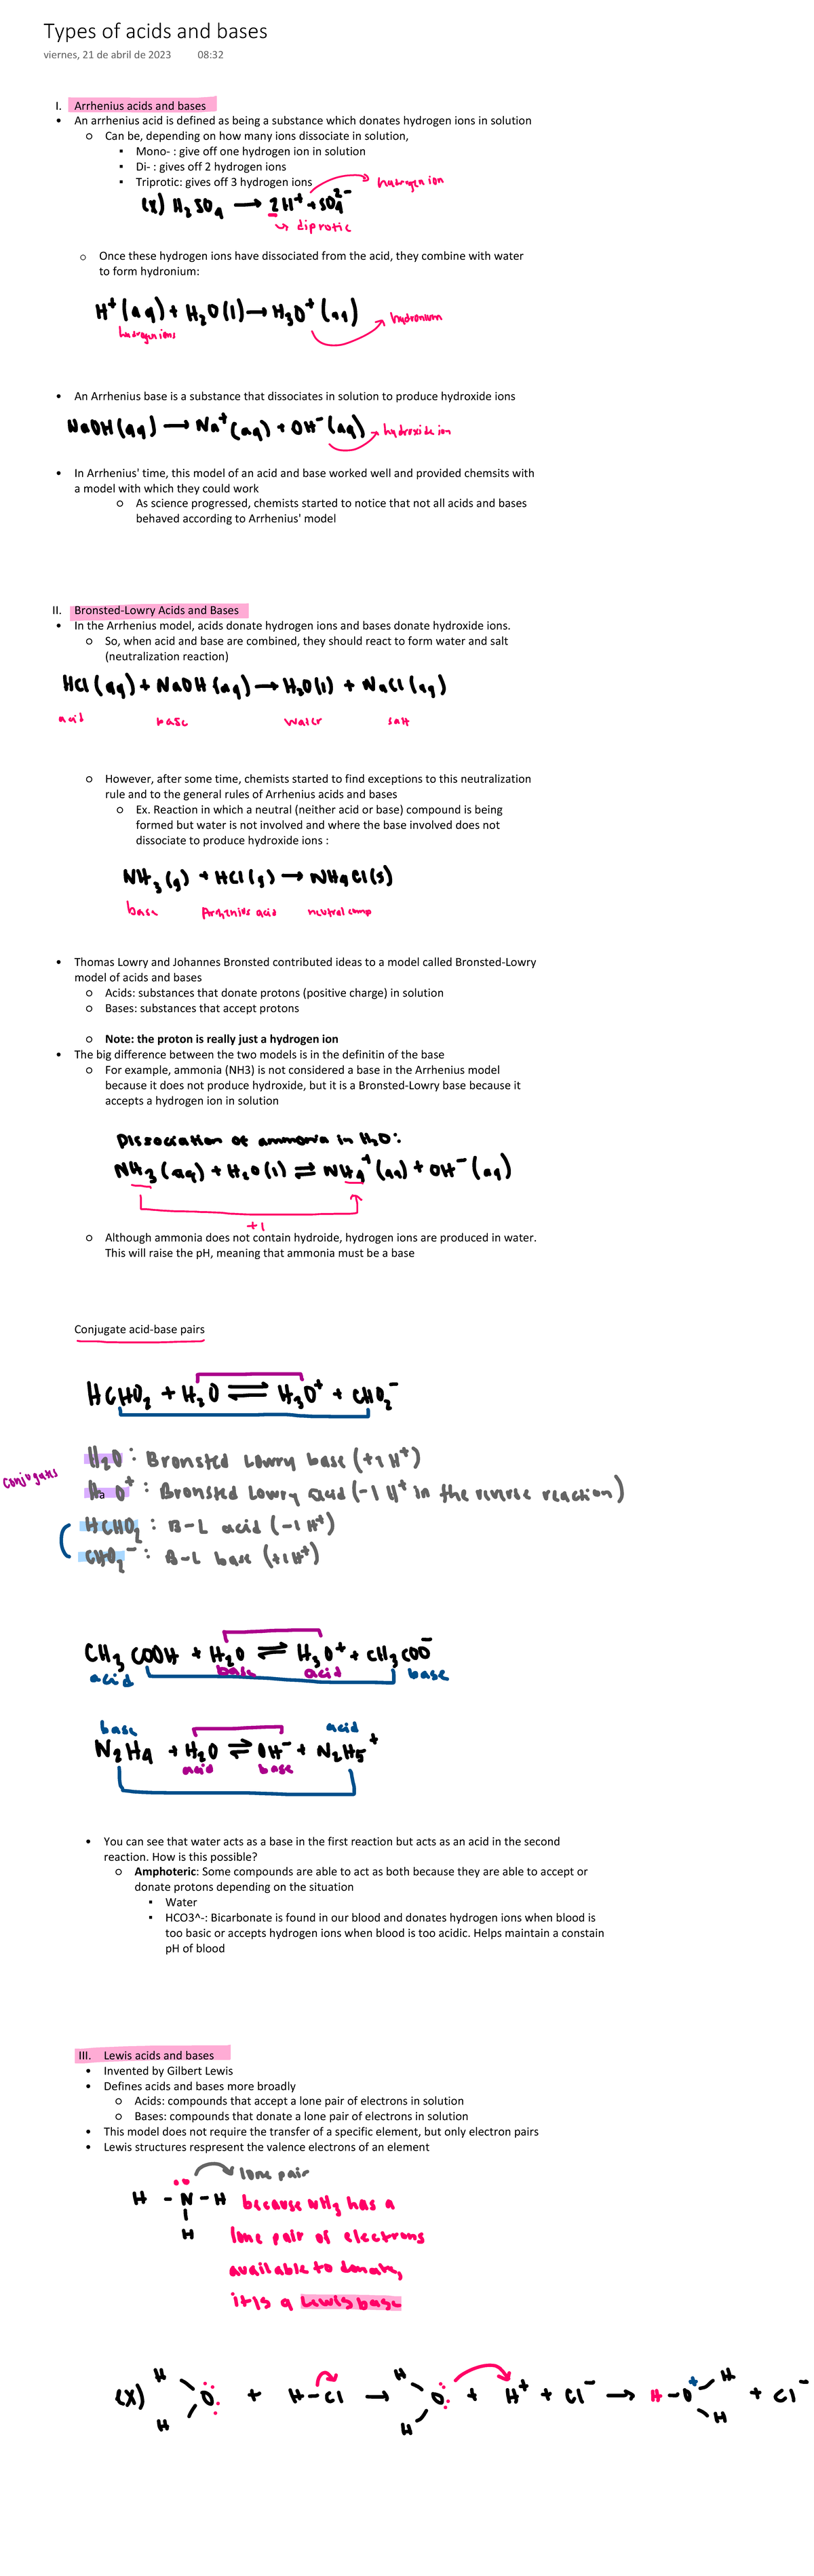 Types of acids and bases
viernes, 21 de abril de 2023 08:32
I. Arrhenius acids and bases
• An arrhenius acid is defined as being a substance which donates hydrogen ions in solution
o Can be, depending on how many ions dissociate in solution,
▪ Mono- : give off one hydrogen ion in solution
▪ Di- : gives off 2 hydrogen ions
▪ Triprotic: gives off 3 hydrogen ions
hydrogen ion
(x) H₂SO₄ → 2H⁺ + SO₄²⁻
↪ diprotic
o Once these hydrogen ions have dissociated from the acid, they combine with water
to form hydronium:
H⁺(aq) + H₂O(l) → H₃O⁺(aq) hydronium
hydrogen ions
• An Arrhenius base is a substance that dissociates in solution to produce hydroxide ions
NaOH(aq) → Na⁺(aq) + OH⁻(aq) hydroxide ion
• In Arrhenius' time, this model of an acid and base worked well and provided chemsits with
a model with which they could work
o As science progressed, chemists started to notice that not all acids and bases
behaved according to Arrhenius' model
II. Bronsted-Lowry Acids and Bases
• In the Arrhenius model, acids donate hydrogen ions and bases donate hydroxide ions.
o So, when acid and base are combined, they should react to form water and salt
(neutralization reaction)
HCl(aq) + NaOH(aq) → H₂O(l) + NaCl(aq)
acid base water salt
o However, after some time, chemists started to find exceptions to this neutralization
rule and to the general rules of Arrhenius acids and bases
o Ex. Reaction in which a neutral (neither acid or base) compound is being
formed but water is not involved and where the base involved does not
dissociate to produce hydroxide ions :
NH₃(g) + HCl(g) → NH₄Cl(s)
base Arrhenius acid neutral comp
• Thomas Lowry and Johannes Bronsted contributed ideas to a model called Bronsted-Lowry
model of acids and bases
o Acids: substances that donate protons (positive charge) in solution
o Bases: substances that accept protons
o Note: the proton is really just a hydrogen ion
• The big difference between the two models is in the definitin of the base
o For example, ammonia (NH3) is not considered a base in the Arrhenius model
because it does not produce hydroxide, but it is a Bronsted-Lowry base because it
accepts a hydrogen ion in solution
Dissociation of ammonia in H₂O:
NH₃(aq) + H₂O(l) ⇌ NH₄⁺(aq) + OH⁻(aq)
+1
o Although ammonia does not contain hydroide, hydrogen ions are produced in water.
This will raise the pH, meaning that ammonia must be a base
Conjugate acid-base pairs
HCHO₂ + H₂O ⇌ H₃O⁺ + CHO₂⁻
H₂O : Bronsted Lowry base (+1 H⁺)
conjugates
H₃O⁺ : Bronsted Lowry acid (-1 H⁺ in the reverse reaction)
a
HCHO₂ : B-L acid (-1 H⁺)
CHO₂⁻ : B-L base (+1 H⁺)
CH₃COOH + H₂O ⇌ H₃O⁺ + CH₃COO⁻
acid base acid base
base acid
N₂H₄ + H₂O ⇌ OH⁻ + N₂H₅⁺
acid base
• You can see that water acts as a base in the first reaction but acts as an acid in the second
reaction. How is this possible?
o Amphoteric: Some compounds are able to act as both because they are able to accept or
donate protons depending on the situation
▪ Water
▪ HCO3^-: Bicarbonate is found in our blood and donates hydrogen ions when blood is
too basic or accepts hydrogen ions when blood is too acidic. Helps maintain a constain
pH of blood
III. Lewis acids and bases
• Invented by Gilbert Lewis
• Defines acids and bases more broadly
o Acids: compounds that accept a lone pair of electrons in solution
o Bases: compounds that donate a lone pair of electrons in solution
• This model does not require the transfer of a specific element, but only electron pairs
• Lewis structures respresent the valence electrons of an element
lone pair
H - N - H because NH₃ has a
H lone pair of electrons
available to donate,
it is a Lewis base
H H H
(x) O + H-Cl → O + H⁺ + Cl⁻ → H-O⁺ + Cl⁻
H H H